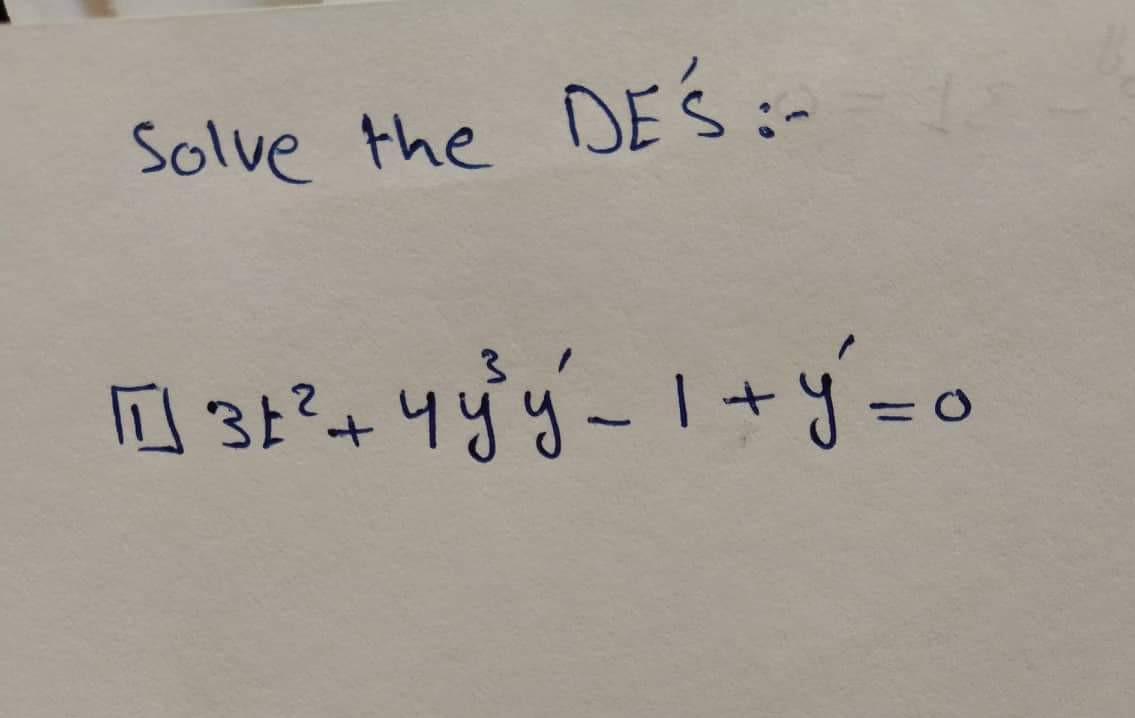 Solve the DE'S :-
1 3t² + 4y³y' - 1 + y' = 0